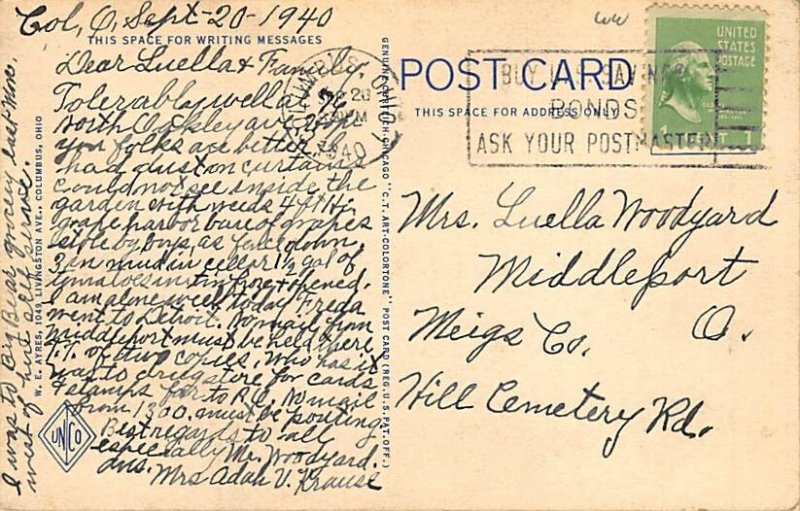 Col, O, Sept-20-1940
THIS SPACE FOR WRITING MESSAGES
Dear Luella & Family,
Tolerably well at 76
North Oakley ave. Hope
you folks are better. I
had dust on curtains
could not see inside the
garden with weeds 4 ft Hi.
grape harbor bare of grapes
stole by boys, as face down,
3 in mud in cellar 1½ gal of
tomatoes in tin froze & opened.
I am alone week today Freda
went to Detroit. No mail from
Middleport must be held there,
of two copies. Who has it
was to drug store for cards
& stamps far to P.O. No mail
from 1300. must be pouting
Best regards to all
especially Mr. Woodyard.
Ans.
Mrs Adah V. Krause
I was to Big Bear grocery last Mon.
west of here self serve.
W. E. AYRES, 1049 LIVINGSTON AVE., COLUMBUS, OHIO
UNICO
GENUINE CURTEICH-CHICAGO "C.T. ART-COLORTONE" POST CARD (REG. U.S. PAT. OFF.)
POST CARD
THIS SPACE FOR ADDRESS ONLY
SEP 20
1940
BUY U.S. SAVINGS
BONDS
ASK YOUR POSTMASTER
UNITED
STATES
POSTAGE
Mrs. Luella Woodyard
Middleport
Meigs Co. O.
Hill Cemetery Rd.